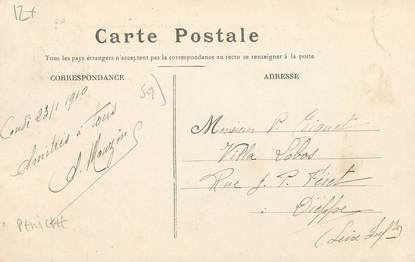 12x
Carte Postale
Tous les pays étrangers n'acceptent pas la correspondance au recto se renseigner à la poste
CORRESPONDANCE
ADRESSE
59
Condé 23/1 1910
Amitiés à Tous
A. Mouzin
PENICHE
Monsieur P. Piquet
Villa Lobos
Rue J. P. Féret
Dieppe
(Seine Infre)